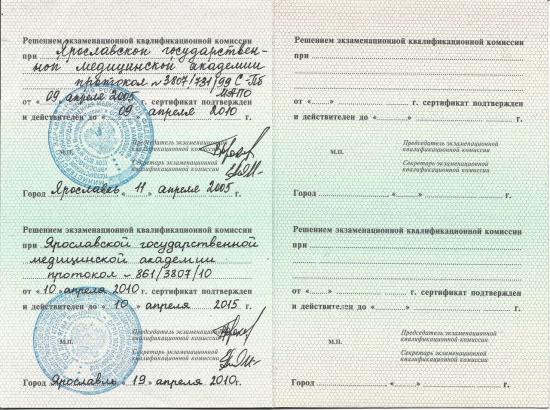 Решением экзаменационной квалификационной комиссии
при Ярославской государствен-
ной медицинской академии
протокол № 3807/731/99 С-Пб
от «09» апреля 2005 г. сертификат подтвержден МАПО
и действителен до «09» апреля 2010 г.
Председатель экзаменационной
квалификационной комиссии
М.П.
Секретарь экзаменационной
квалификационной комиссии
Город Ярославль «11» апреля 2005 г.
Решением экзаменационной квалификационной комиссии
при Ярославской государственной
медицинской академии
протокол - 861/3807/10
от «10» апреля 2010 г. сертификат подтвержден
и действителен до «10» апреля 2015 г.
Председатель экзаменационной
квалификационной комиссии
М.П.
Секретарь экзаменационной
квалификационной комиссии
Город Ярославль «19» апреля 2010 г.
Решением экзаменационной квалификационной комиссии
при
от «......» г. сертификат подтвержден
и действителен до «......» г.
Председатель экзаменационной
квалификационной комиссии
М.П.
Секретарь экзаменационной
квалификационной комиссии
Город «......» г.
Решением экзаменационной квалификационной комиссии
при
от «......» г. сертификат подтвержден
и действителен до «......» г.
Председатель экзаменационной
квалификационной комиссии
М.П.
Секретарь экзаменационной
квалификационной комиссии
Город «......» г.